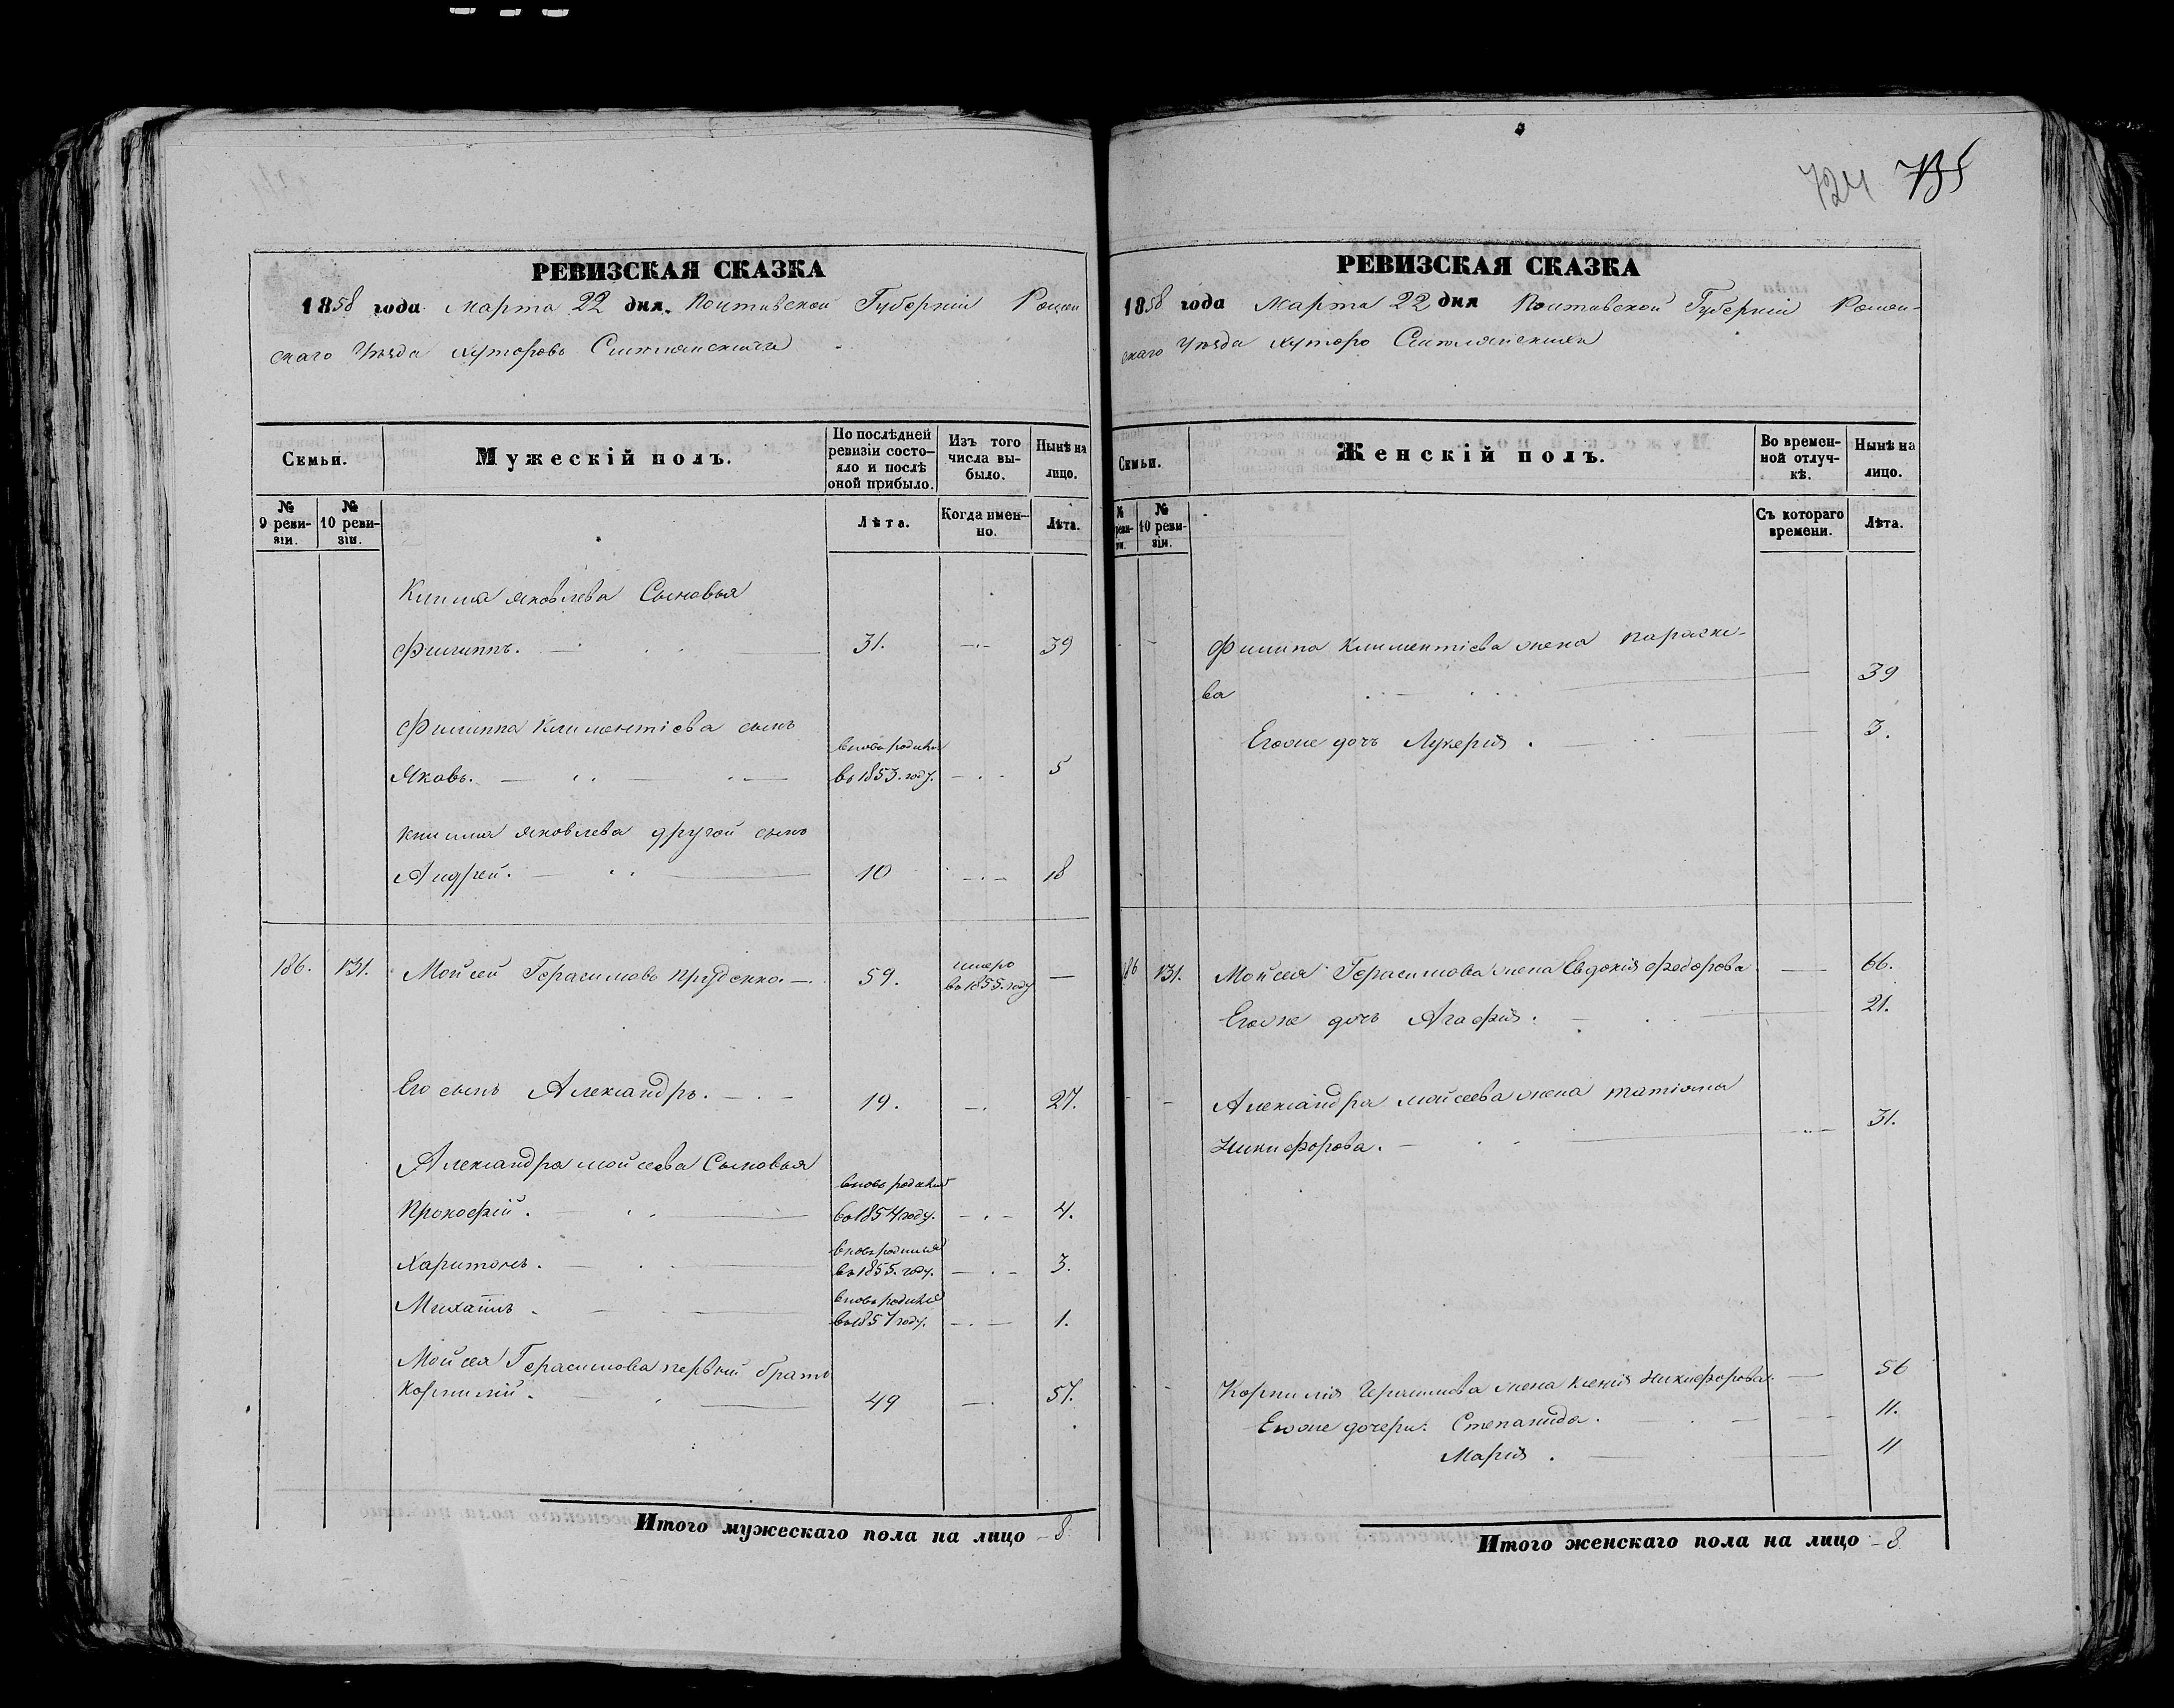 724 735
РЕВИЗСКАЯ СКАЗКА
1858 года Марта 22 дня. Полтавской Губерніи Ромен
скаго Уѣзда хуторовъ
Семьи.
Мужескій полъ.
По послѣдней ревизіи состояло и послѣ оной прибыло.
Изъ того числа выбыло.
Нынѣ на лицо.
№ 9 ревизіи.
№ 10 ревизіи.
Лѣта.
Когда именно.
Лѣта.
Клима Яковлева Сыновья
Филиппъ. 31. 39
Филиппа Климентіева сынъ
Яковъ. вновь рожден въ 1853. году. 5
Клима Яковлева другой сынъ
Андрей. 10 18
186. 131. Мойсей Герасимовъ Пруденко. 59. умеро въ 1855. году —
Его сынъ Александръ. 19. 27.
Александра Мойсеева Сыновья
Прокофій. вновь рожден въ 1854 году. 4.
Харитонъ. вновь рожден въ 1855. году. 3.
Михаилъ. вновь рожден въ 1857 году. 1.
Мойсея Герасимова первый братъ
Корнилій. 49 57.
Итого мужескаго пола на лицо 8
РЕВИЗСКАЯ СКАЗКА
1858 года Марта 22 дня Полтавской Губерніи Ромен-
скаго Уѣзда хуторо
Семьи.
Женскій полъ.
Во временной отлучкѣ.
Нынѣ на лицо.
№ ревизіи.
№ 10 ревизіи.
Съ котораго времени.
Лѣта.
Филипа Климентіева жена Параски-
ва 39
Егоже дочь Лукерія. 3.
186 131. Мойсея Герасимова жена Евдокія Федорова 66.
Егоже дочь Агафія. 21.
Александра Мойсеева жена Татіяна
Никифорова. 31.
Корнилія Герасимова жена Ксенія Никифорова. 56
Егоже дочери: Степанида. 11.
Марія. 11
Итого женскаго пола на лицо 8